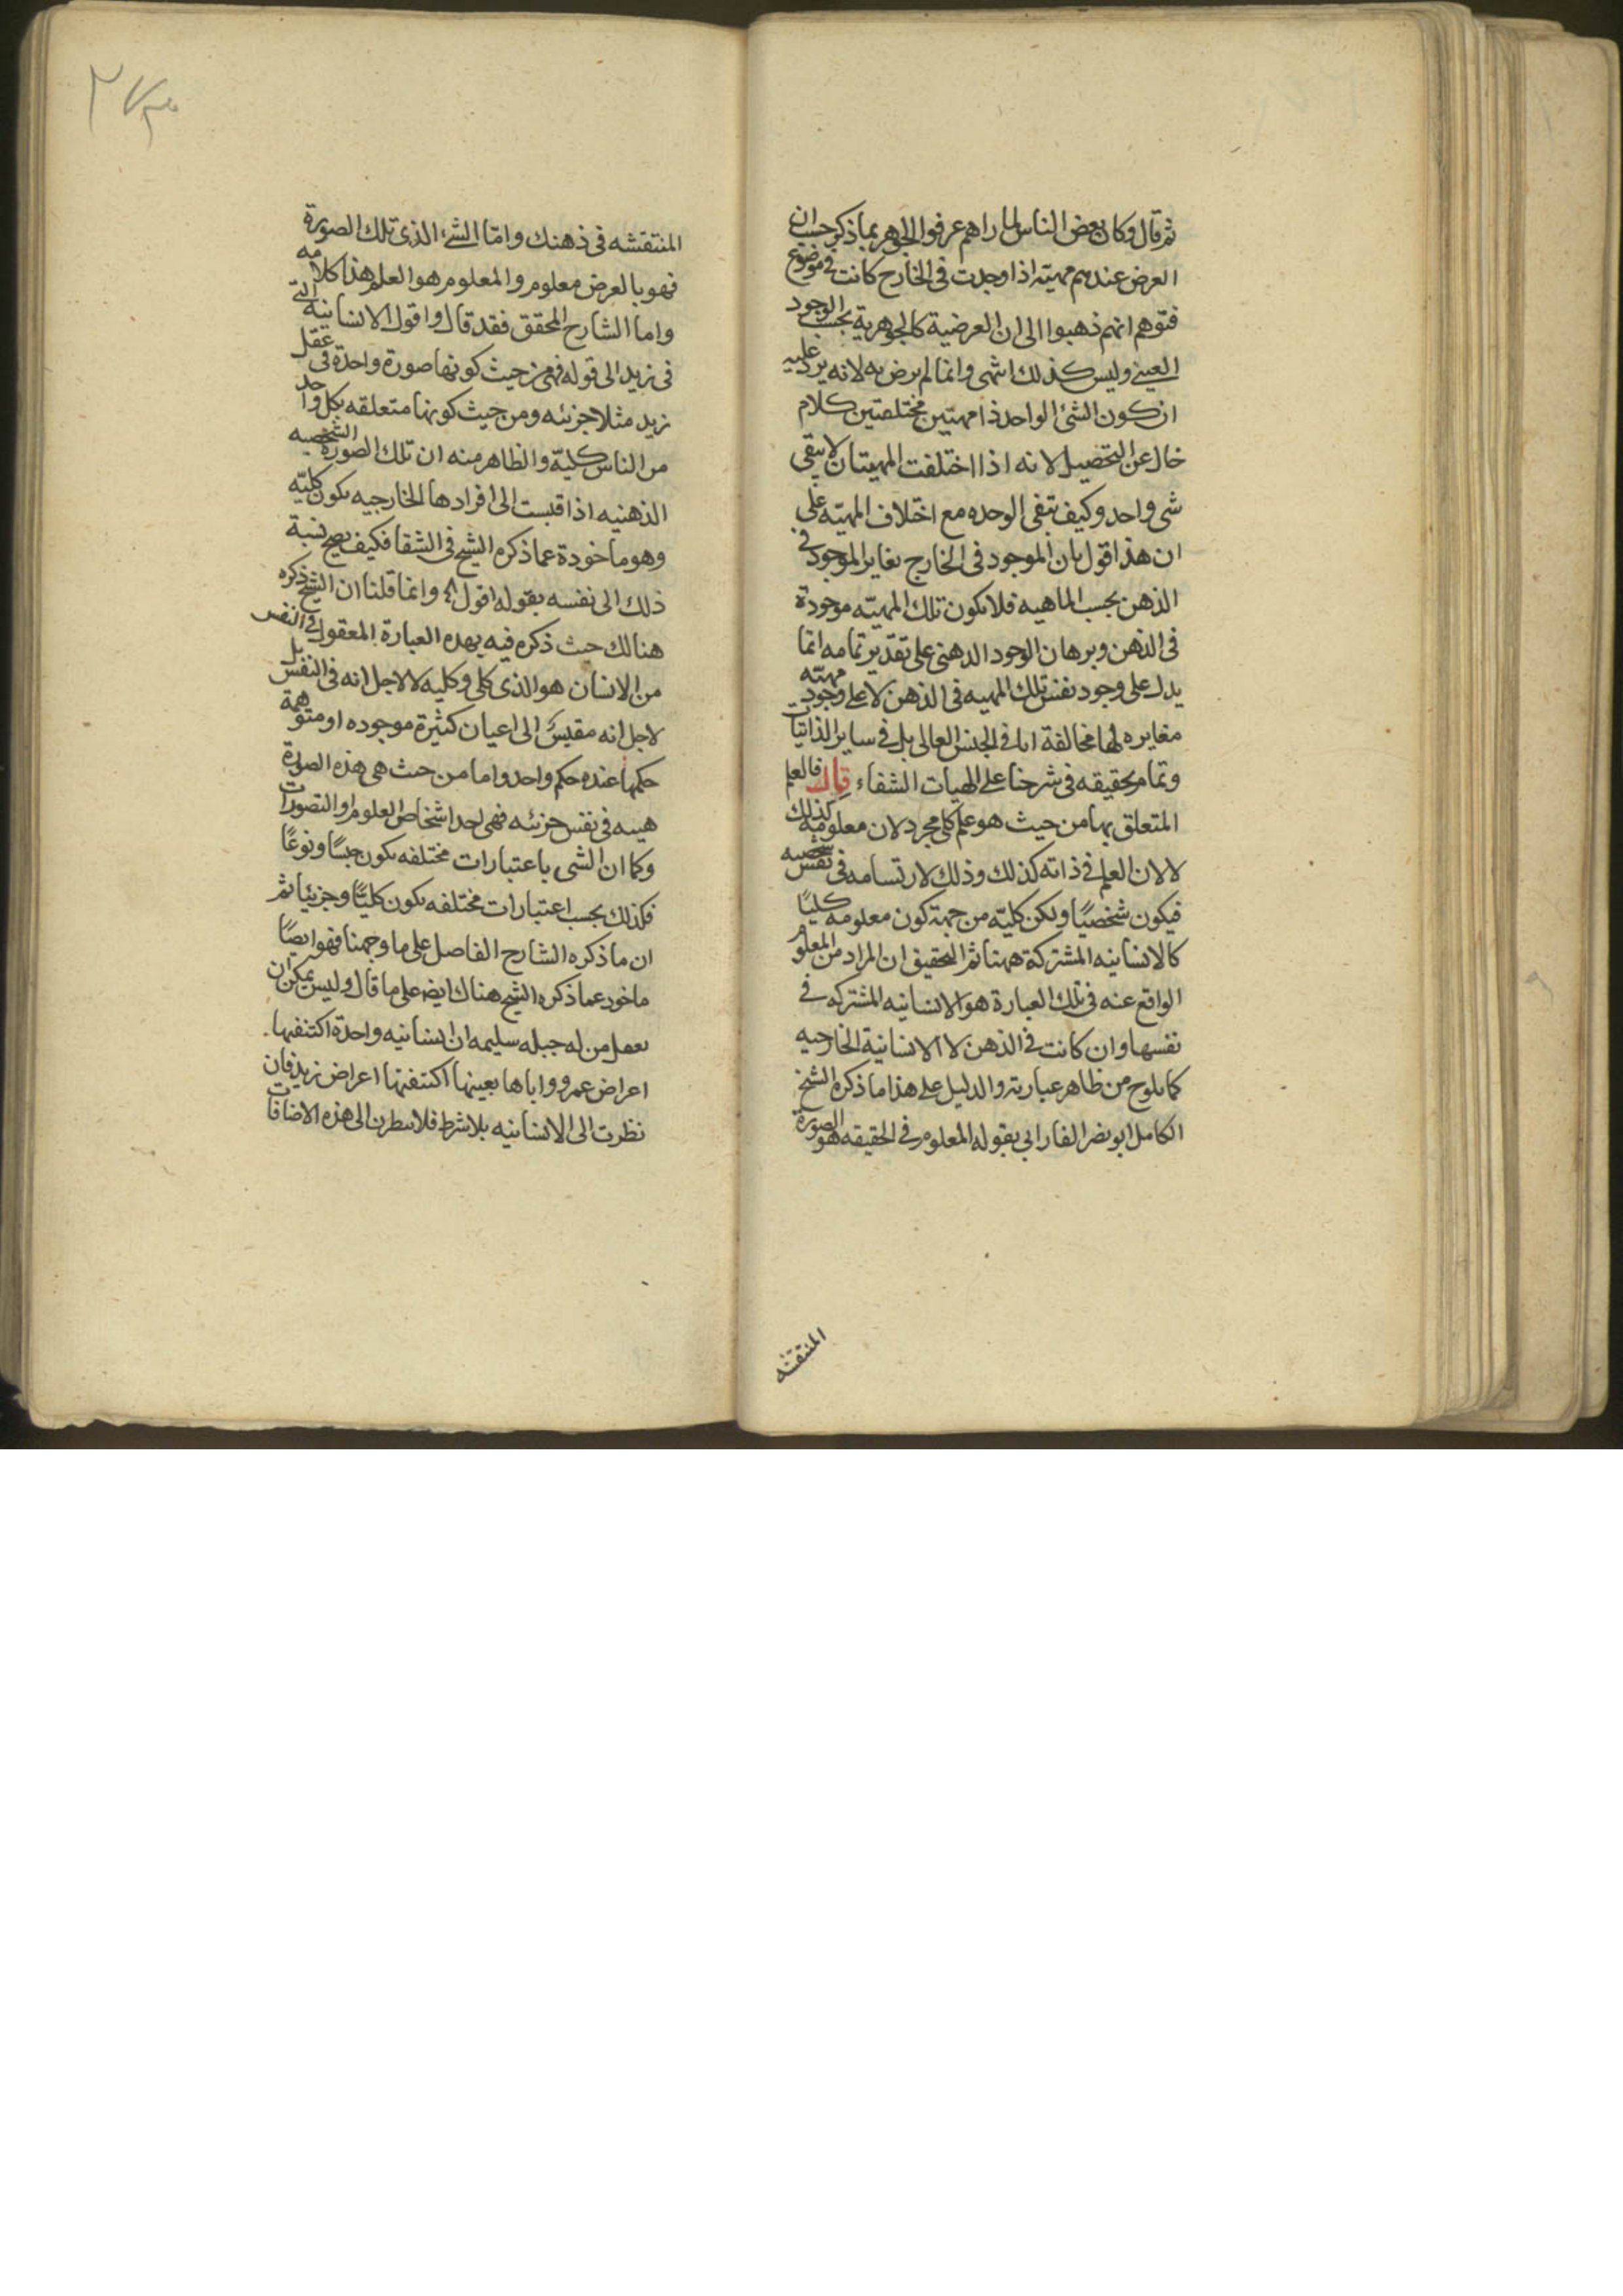 ثم قال وكان بعض الناس لما راهم عرفوا الجوهر بما ذكر حسب ان
العرض عندهم مهيته اذا وجدت فى الخارج كانت فى موضوع
فتوهم انهم ذهبوا الى ان العرضية كالجوهرية بحسب الوجود
العينى وليس كذلك انتهى وانما لم يرض به لانه يرد عليه
ان كون الشئ الواحد ذا مهيتين مختلفتين كلام
خال عن التحصيل لانه اذا اختلفت المهيتان لا يبقى
شى واحد وكيف تبقى الوحده مع اختلاف المهيته على
ان هذا قول بان الموجود فى الخارج يغاير الموجود فى
الذهن بحسب الماهيه فلا يكون تلك المهيته موجودة
فى الذهن وبرهان الوجود الذهنى على تقدير تمامه انما
يدل على وجود نفس تلك المهيه فى الذهن لا على وجود مهيته
مغايره لها مخالفة اما فى الجنس العالى بل فى ساير الذاتيات
وتمام تحقيقه فى شرحنا على الهيات الشفاء قال فالعلم
المتعلق بها من حيث هو علم كلى مجرد لان معلومه كذلك
لا لان العلم فى ذاته كذلك وذلك لارتسامه فى نفس شخصيه
فيكون شخصيًا ولكن كليته من جهة كون معلومه كليًا
كالانسانيه المشتركة ههنا ثم التحقيق ان المراد من المعلوم
الواقع عنه فى تلك العبارة هو الانسانيه المشتركه فى
نفسها وان كانت فى الذهن لا الانسانية الخارجيه
كما يلوح من ظاهر عبارته والدليل على هذا ما ذكره الشيخ
الكامل ابو نصر الفارابى بقوله المعلوم فى الحقيقه هو الصورة
المنتقشه
المنتقشه فى ذهنك واما الشئ الذى تلك الصورة
فهو بالعرض معلوم والمعلوم هو العلم هذا كلامه
واما الشارح المحقق فقد قال واقول الانسانيه التى
فى زيد الى قوله فهى من حيث كونها صورة واحدة فى عقل
زيد مثلا جزئيه ومن حيث كونها متعلقه بكل واحد
من الناس كليّة والظاهر منه ان تلك الصورة الشخصيه
الذهنيه اذا قيست الى افرادها الخارجيه يكون كليّه
وهو ماخودة عما ذكره الشيخ فى الشفا فكيف يصح نسبة
ذلك الى نفسه بقوله اقول وانما قلنا ان الشيخ ذكره
هنالك حيث ذكره فيه بهذه العبارة المعقول فى النفس
من الانسان هو الذى كلى وكليه لا لاجل انه فى النفس بل
لاجل انه مقيس الى اعيان كثيرة موجوده او متوهمة
حكمها عنده حكم واحد واما من حيث هى هذه الصورة
هيىه فى نفس جزئيه فهى احد اشخاص العلوم او التصورات
وكما ان الشى باعتبارات مختلفه يكون جنسًا ونوعًا
فكذلك بحسب اعتبارات مختلفه يكون كليّا وجزئيا ثم
ان ما ذكره الشارح الفاصل على ما وجهنا فهو ايضًا
ماخود عما ذكره الشيخ هناك ايضا على ما قال وليس يمكن ان
يعقل من له جبله سليمه ان انسانيه واحدة اكتنفها
اعراض عمرو واياها بعينها اكتنفتها اعراض زيد فان
نظرت الى الانسانيه بلا شرط فلا ينظرن الى هذه الاضافات